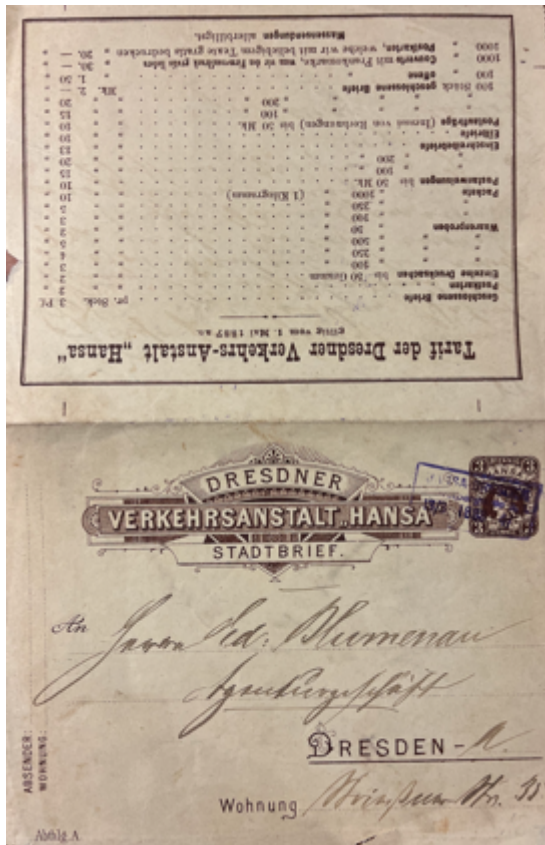 Tarif der Dresdner Verkehrs-Anstalt „Hansa“
gültig vom 1. Mai 1887 an.
Geschlossene Briefe . . . pr. Stck. 3 Pf.
Postkarten . . . " " 2 "
Einzelne Drucksachen bis 50 Gramm . . . " " 2 "
" " " 100 " . . . " " 3 "
" " " 250 " . . . " " 4 "
" " " 500 " . . . " " 5 "
Waarenproben " 50 " . . . " " 2 "
" " 100 " . . . " " 3 "
" " 250 " . . . " " 5 "
Packete " 1000 " (1 Kilogramm) . . . " " 10 "
Postanweisungen bis 50 Mk. . . . " " 10 "
" " 100 " . . . " " 15 "
" " 200 " . . . " " 20 "
Einschreibebriefe . . . " " 13 "
Eilbriefe . . . " " 10 "
Postaufträge (Incasi von Rechnungen) bis 50 Mk. . . . " " 10 "
" " 100 " . . . " " 15 "
" " 200 " . . . " " 20 "
100 Stück geschlossene Briefe . . . Mk. 2. —
100 " offene " . . . " 1. 50
1000 " Couverts mit Frankomarke,
1000 " Postkarten, welche wir mit beliebigem Texte gratis bedrucken " 20. —
Massensendungen allerbilligst.
DRESDNER
VERKEHRSANSTALT „HANSA“
STADTBRIEF.
3 HANSA 3
3 3
An Herrn Ed: Blumenau
Agenturgeschäft
DRESDEN - A.
Wohnung Str.
ABSENDER:
WOHNUNG:
Abthlg A